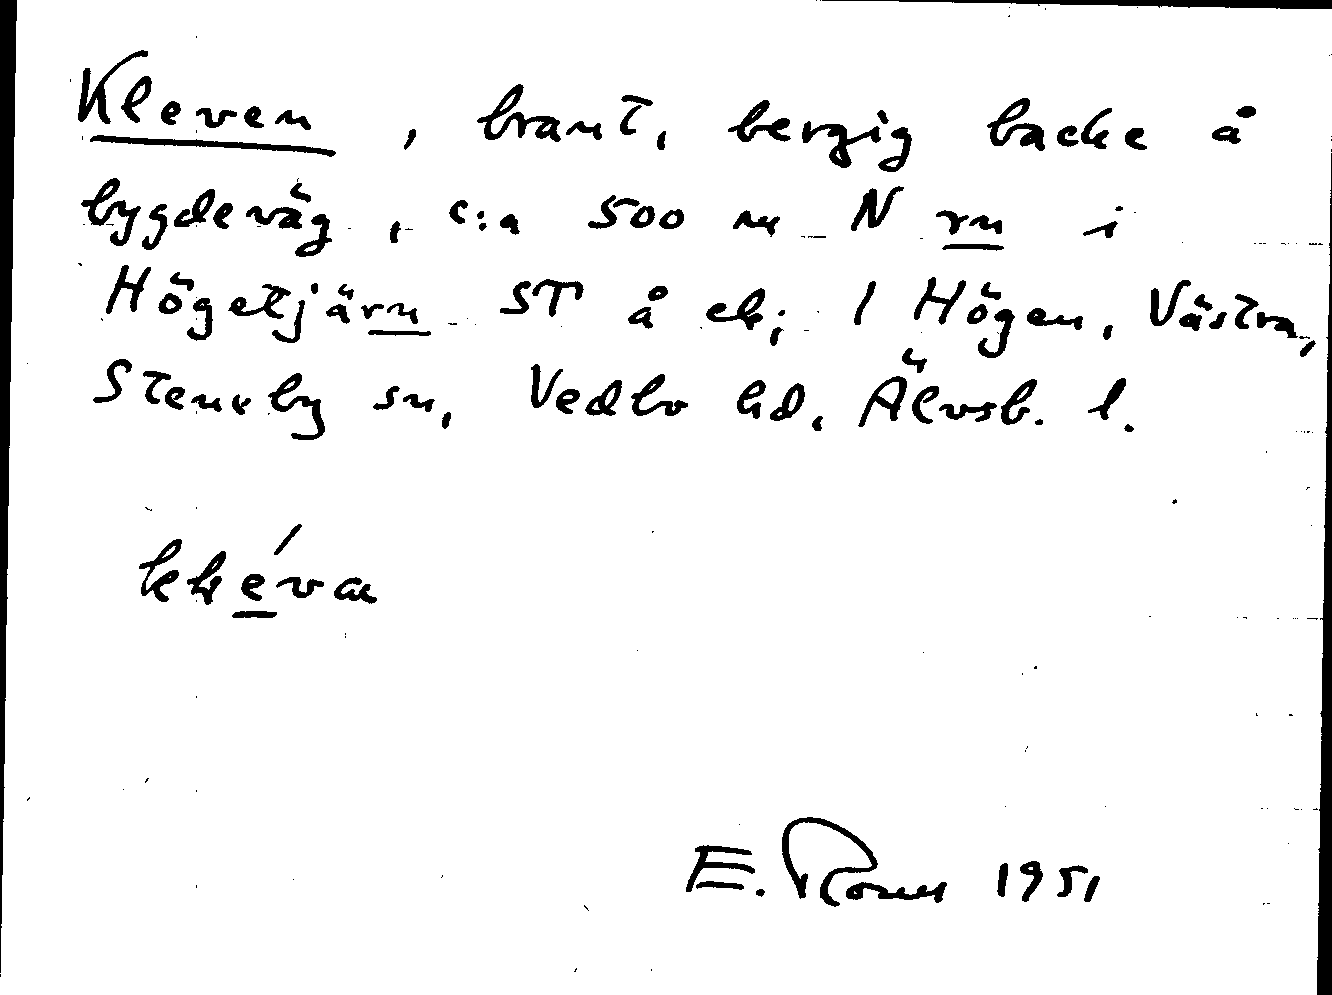 Kleven, brant, bergig backe å
bygdeväg, c:a 500 m N rn i
Högetjärn ST å ek; 1 Högen, Västra,
Steneby sn, Vedbo hd, Älvsb. l.
1951